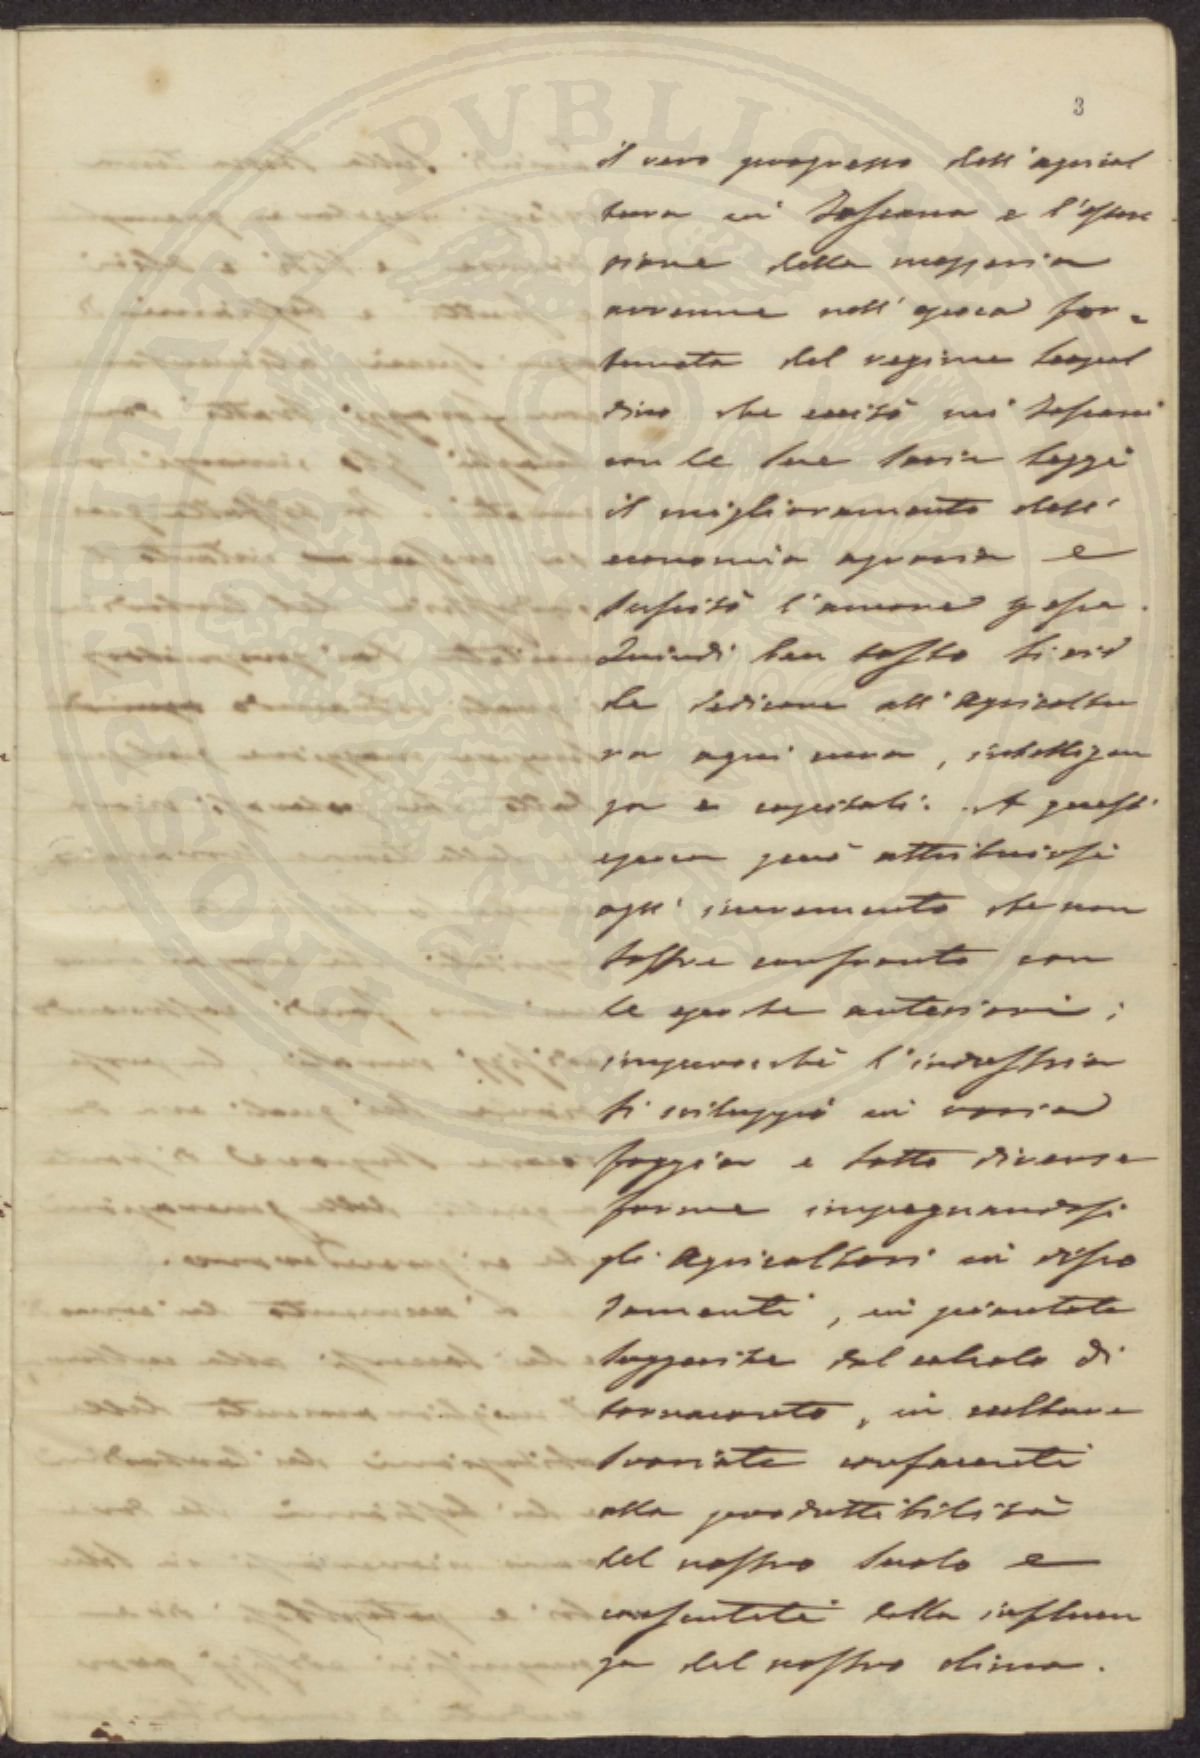 3
il vero progresso dell'agricol
tura in Toscana e l'esten
sione della mezzeria
avvenne nell'epoca for=
tunata del regime Leopol
dino che eccitò nei Toscani
con le sue savie leggi
il miglioramento dell'
economia agraria e
suscitò l'amore ad essa.
Quindi ben tosto si vid
de dedicare all'Agricoltu
ra ogni cura, intelligen
za e capitali. A quest'
epoca può attribuirsi
ogni incremento che non
soffre confronto con
le epoche anteriori;
imperocchè l'industria
si sviluppò in varia
foggia e sotto diverse
forme impegnandosi
gli Agricoltori in disso
damenti, in piantate
suggerite dal calcolo di
tornaconto, in culture
svariate confacenti
alla produttibilità
del nostro suolo e
consentite dalla influen
za del nostro clima.